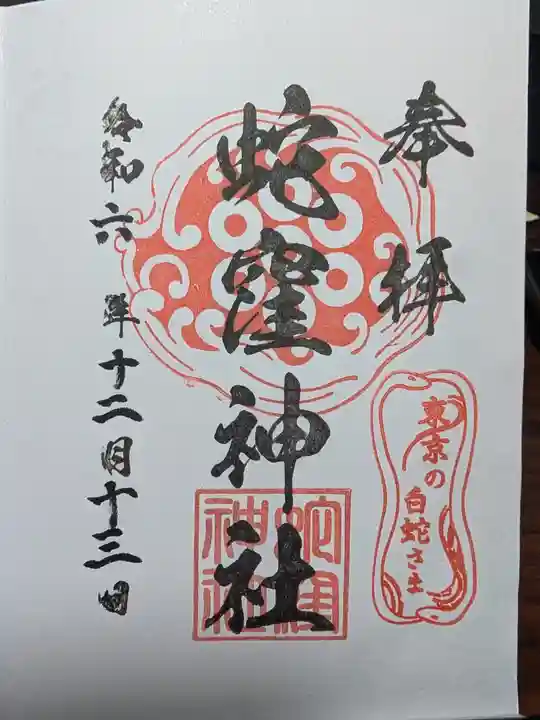 奉拝
蛇窪神社
蛇窪
神社
東京の
白蛇さま
令和六年十二月十三日